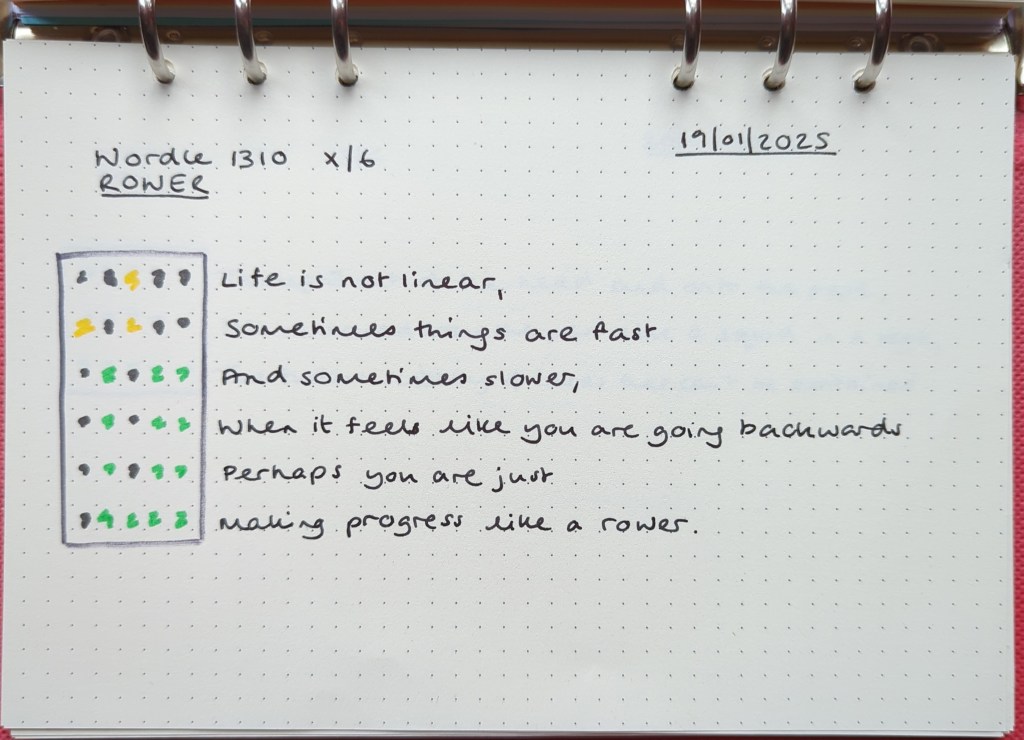 Wordle 1310 x/6
ROWER
19/01/2025
Life is not linear,
Sometimes things are fast
And sometimes slower,
When it feels like you are going backwards
Perhaps you are just
Making progress like a rower.